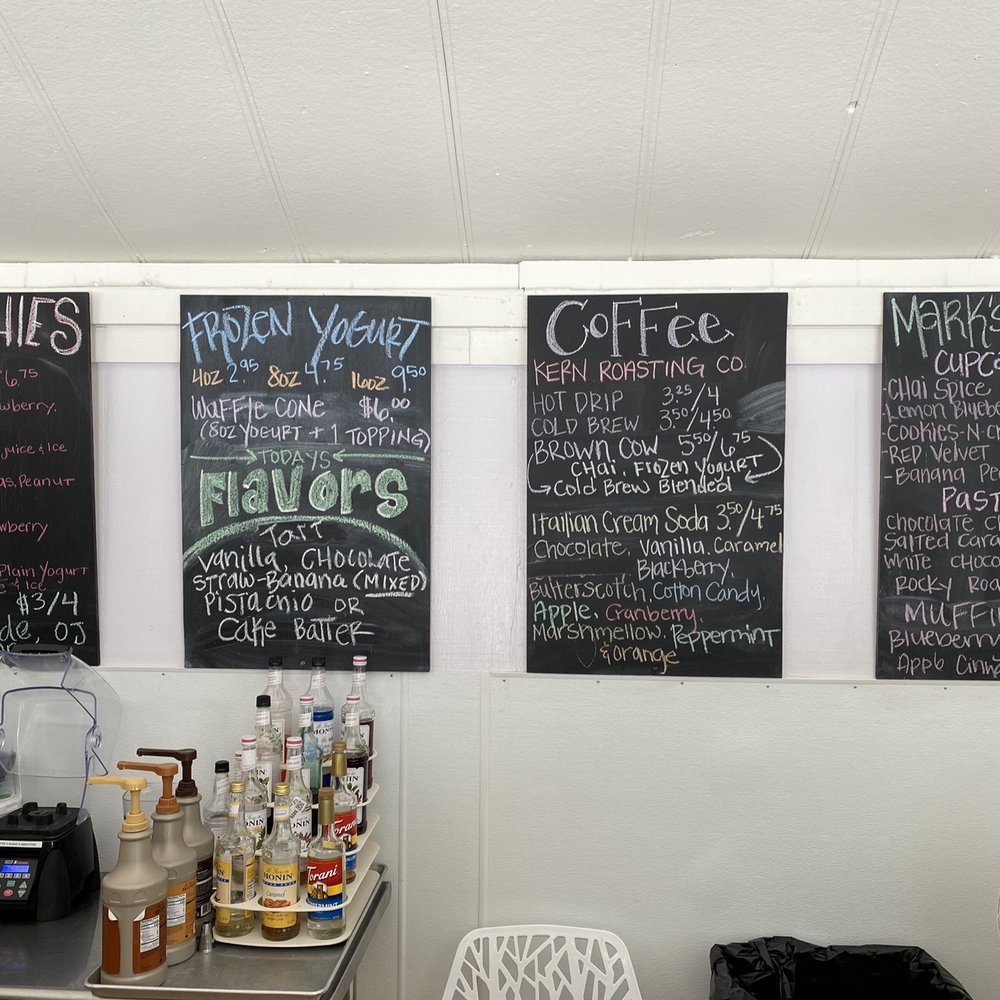 HIES
$6.75
wberry,
juice & Ice
as, Peanut
wberry
Plain Yogurt
& Ice
$3/4
de, OJ
FROZEN YOGURT
4OZ 2.95 8OZ 4.75 16OZ 9.50
WAFFLE CONE $6.00
(8OZ YOGURT + 1 TOPPING)
TODAYS
Flavors
TART
Vanilla, CHOCOLATE
STRAW-BANANA (MIXED)
PISTACHIO OR
CAKE BATTER
COFFee
KERN ROASTING CO.
HOT DRIP 3.25/4
COLD BREW 3.50/4.50
BROWN COW 5.50/6.75
CHAI, FROZEN YOGURT
COLD BREW Blended
Itailian Cream Soda 3.50/4.75
Chocolate, Vanilla, Caramel
Blackberry,
Butterscotch, Cotton Candy,
Apple, Cranberry,
Marshmellow, Peppermint
& orange
MARK'S
CUPCA
-CHAI SPICE
Lemon Blueb
-COOKIES-N-CR
-RED VELVET
-Banana Pe
PAST
CHOCOLATE C
Salted Cara
WHITE CHOCO
ROCKY ROA
MUFFI
Blueberry
Cinn
MONIN
MONIN
MONIN
Caramel
Torani
Torani